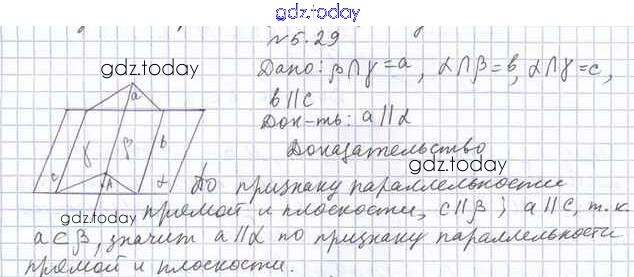 gdz.today
№5.29
gdz.today
Дано: β∩γ=a, α∩β=b, α∩γ=c,
b||c
Док-ть: a||α
Доказательство
gdz.today
a
γ
β
b
c
A
α
По признаку параллельности
gdz.today
прямой и плоскости, c||β; a||c, т.к.
a⊂β, значит a||α по признаку параллельности
прямой и плоскости.